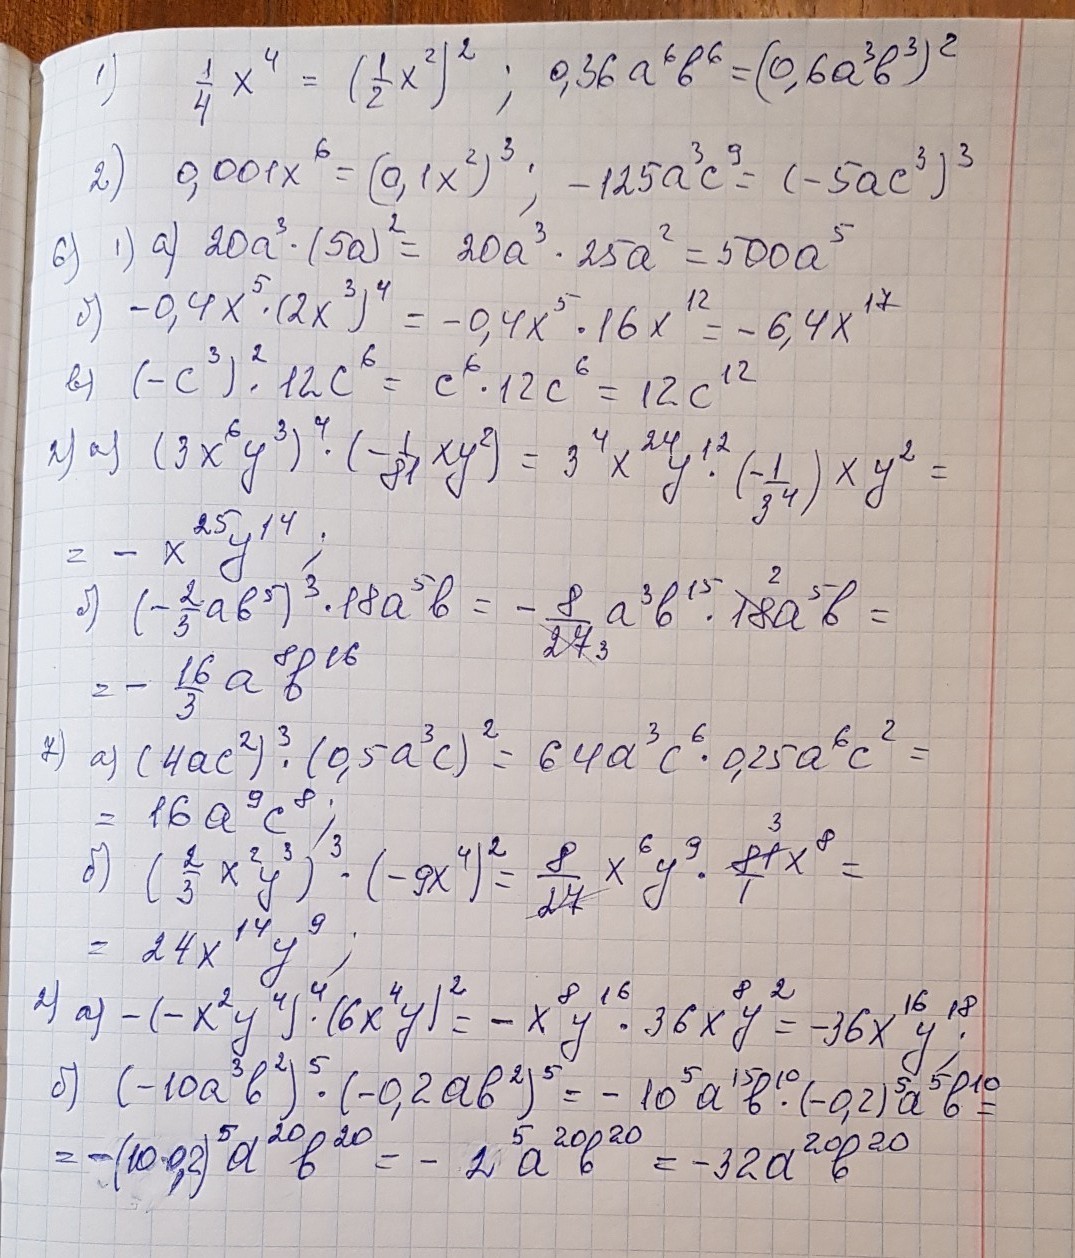 1) 1/4 x⁴ = (1/2 x²)² ; 0,36a⁶b⁶ = (0,6a³b³)²
2) 0,001x⁶ = (0,1x²)³ ; -125a³c⁹ = (-5ac³)³
6) 1) а) 20a³ · (5a)² = 20a³ · 25a² = 500a⁵
б) -0,4x⁵ · (2x³)⁴ = -0,4x⁵ · 16x¹² = -6,4x¹⁷
в) (-c³)² · 12c⁶ = c⁶ · 12c⁶ = 12c¹²
2) а) (3x⁶y³)⁴ · (-1/81 xy²) = 3⁴x²⁴y¹² · (-1/3⁴) x y² =
= - x²⁵y¹⁴ ;
б) (-2/3 ab⁵)³ · 18a⁵b = - 8/27 3 a³b¹⁵ · 18 2 a⁵b =
= - 16/3 a⁸b¹⁶
7) а) (4ac²)³ · (0,5a³c)² = 64a³c⁶ · 0,25a⁶c² =
= 16a⁹c⁸ ;
б) (2/3 x²y³)³ · (-9x⁴)² = 8/27 x⁶y⁹ · 81/1 3 x⁸ =
= 24x¹⁴y⁹ ;
2) а) -(-x²y⁴)⁴ · (6x⁴y)² = - x⁸y¹⁶ · 36x⁸y² = -36x¹⁶y¹⁸ ;
б) (-10a³b²)⁵ · (-0,2ab²)⁵ = - 10⁵a¹⁵b¹⁰ · (-0,2)⁵a⁵b¹⁰ =
= -(10·0,2)⁵a²⁰b²⁰ = - 2⁵a²⁰b²⁰ = -32a²⁰b²⁰